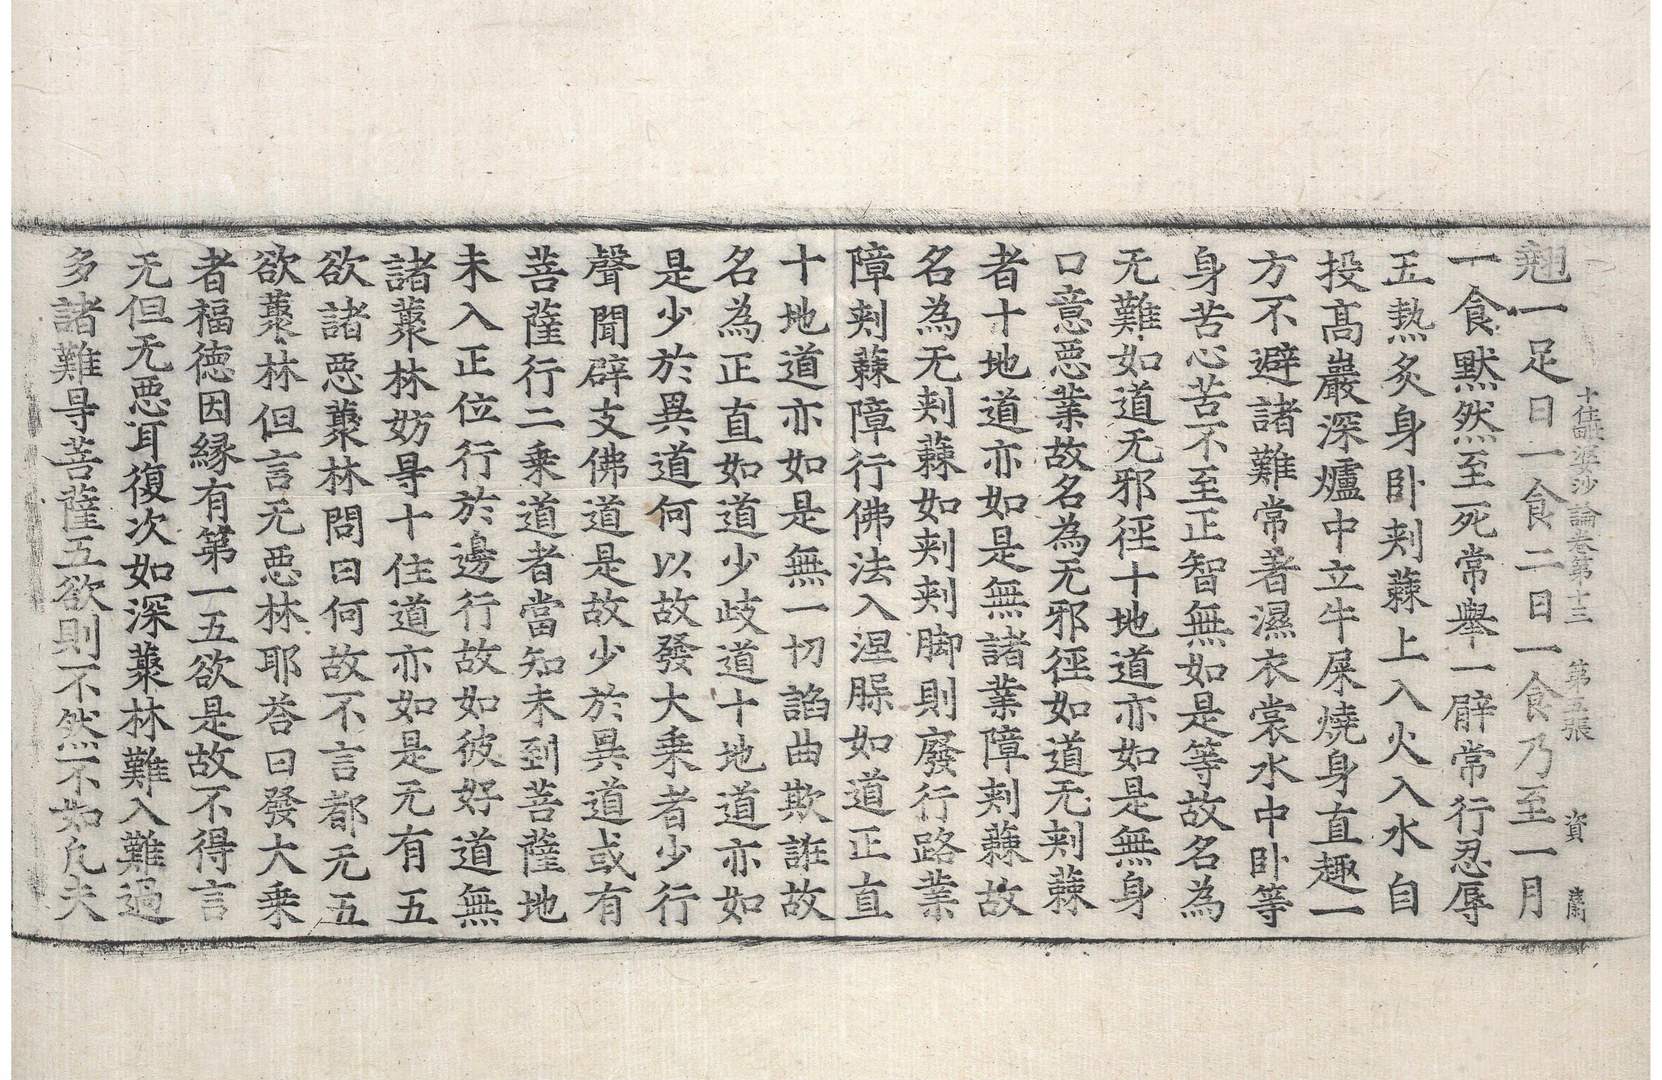 翹一足日一食二日一食乃至一月
十住毗婆沙論卷第十三　第五張　資
一食默然至死常舉一臂常行忍辱
五熱炙身卧刾蕀上入火入水自
投髙巖深爐中立牛屎燒身直趣一
方不避諸難常著濕衣裳水中卧等
身苦心苦不至正智無如是等故名為
无難如道无邪徑十地道亦如是無身
口意惡業故名為无邪徑如道无刾蕀
者十地道亦如是無諸業障刾蕀故
名為无刾蕀如刾刾脚則廢行路業
障刾蕀障行佛法入涅𦙶如道正直
十地道亦如是無一切諂曲欺誑故
名為正直如道少歧道十地道亦如
是少於異道何以故發大乘者少行
聲聞辟支佛道是故少於異道或有
菩薩行二乘道者當知未到菩薩地
未入正位行於邊行故如彼好道無
諸䕺林妨㝵十住道亦如是无有五
欲諸惡䕺林問曰何故不言都无五
欲䕺林但言无惡林耶荅曰發大乘
者福德因縁有第一五欲是故不得言
无但无惡耳復次如深䕺林難入難過
多諸難㝵菩薩五欲則不然不如凡夫